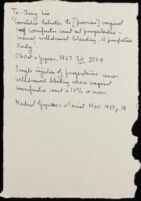 To: Jung Lee
"Correlation between the [previous] vaginal
cornification count and progesterone -
induced withdrawal bleeding. A prospective
study"
Obstet + Gynec, 1967 30, 251-9
Single injection of progesterone causes
withdrawal bleeding where vaginal
cornification count is 10% or more.
Medical Gynaec. + Social Nov. 1967, 14